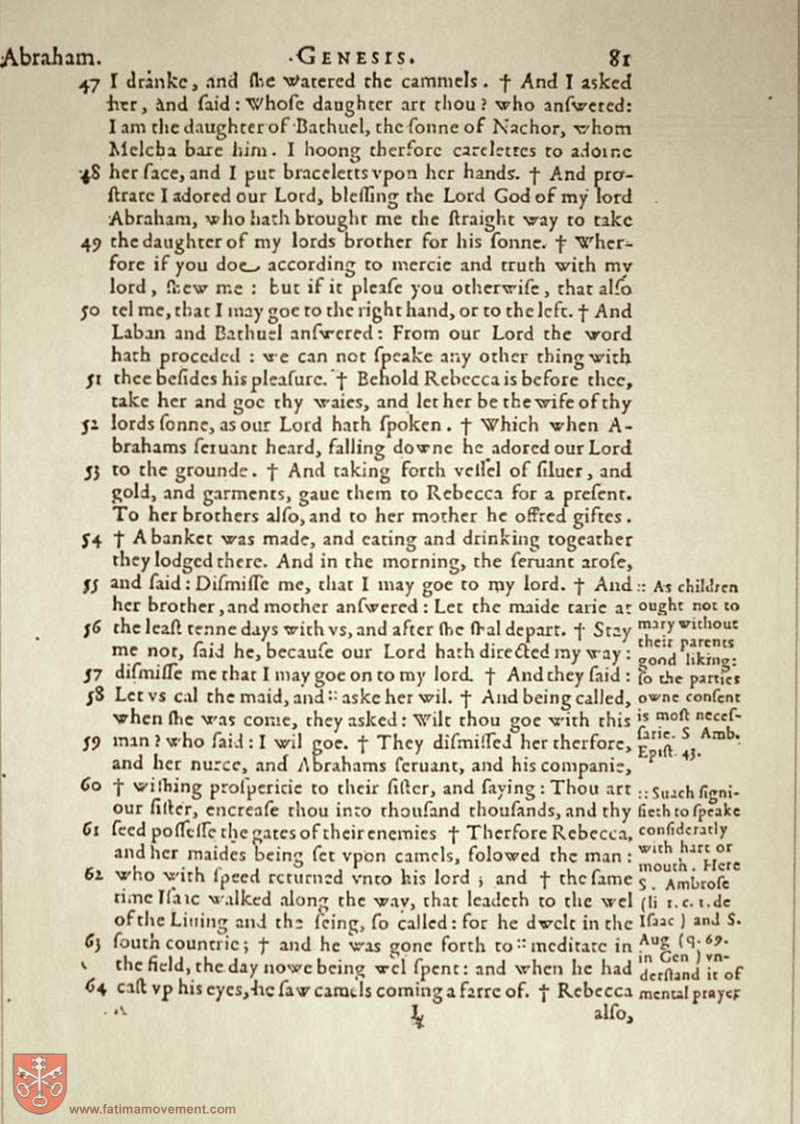 Abraham. ·GENESIS. 81
47 I dranke, and ſhe watered the cammels. † And I asked
her, and ſaid: Whoſe daughter art thou? who anſwered:
I am the daughter of Bathuel, the ſonne of Nachor, whom
Melcha bare him. I hoong therfore earelettes to adorne
48 her face, and I put braceletts vpon her hands. † And pro-
ſtrate I adored our Lord, bleſſing the Lord God of my lord
Abraham, who hath brought me the ſtraight way to take
49 the daughter of my lords brother for his ſonne. † Wher-
fore if you doe according to mercie and truth with my
lord, ſhew me: but if it pleaſe you otherwiſe, that alſo
50 tel me, that I may goe to the right hand, or to the left. † And
Laban and Bathuel anſwered: From our Lord the word
hath proceded: we can not ſpeake any other thing with
51 thee beſides his pleaſure. † Behold Rebecca is before thee,
take her and goe thy waies, and let her be the wife of thy
52 lords ſonne, as our Lord hath ſpoken. † Which when A-
brahams ſeruant heard, falling downe he adored our Lord
53 to the grounde. † And taking forth veſſel of ſiluer, and
gold, and garments, gaue them to Rebecca for a preſent.
To her brothers alſo, and to her mother he offred giftes.
54 † A banket was made, and eating and drinking togeather
they lodged there. And in the morning, the ſeruant aroſe,
55 and ſaid: Diſmiſſe me, that I may goe to my lord. † And
her brother, and mother anſwered: Let the maide tarie at
56 the leaſt tenne days with vs, and after ſhe ſhal depart. † Stay
me not, ſaid he, becauſe our Lord hath directed my way:
57 diſmiſſe me that I may goe on to my lord. † And they ſaid:
58 Let vs cal the maid, and :: aske her wil. † And being called,
when ſhe was come, they asked: Wilt thou goe with this
59 man? who ſaid: I wil goe. † They diſmiſſed her therfore,
and her nurce, and Abrahams ſeruant, and his companie,
60 † wiſhing proſperitie to their ſiſter, and ſaying: Thou art
our ſiſter, encreaſe thou into thouſand thouſands, and thy
61 ſeed poſſeſſe the gates of their enemies † Therfore Rebecca,
and her maides being ſet vpon camels, folowed the man:
62 who with ſpeed returned vnto his lord; and † the ſame
time Iſaac walked along the way, that leadeth to the wel
of the Liuing and the ſeing, ſo called: for he dwelt in the
63 ſouth countrie; † and he was gone forth to :: meditate in
the field, the day nowe being wel ſpent: and when he had
64 caſt vp his eyes, he ſaw camels coming a farre of. † Rebecca
L alſo,
:: As children
ought not to
mary without
their parents
good liking:
ſo the parties
owne conſent
is moſt neceſ-
ſarie. S Amb.
Epiſt. 43.
:: Suach ſigni-
fieth to ſpeake
conſideratly
with hart or
mouth. Here
S. Ambroſe
(li 1. c. 1. de
Iſaac) and S.
Aug (q. 69.
in Gen) vn-
derſtand it of
mental prayer
www.fatimamovement.com